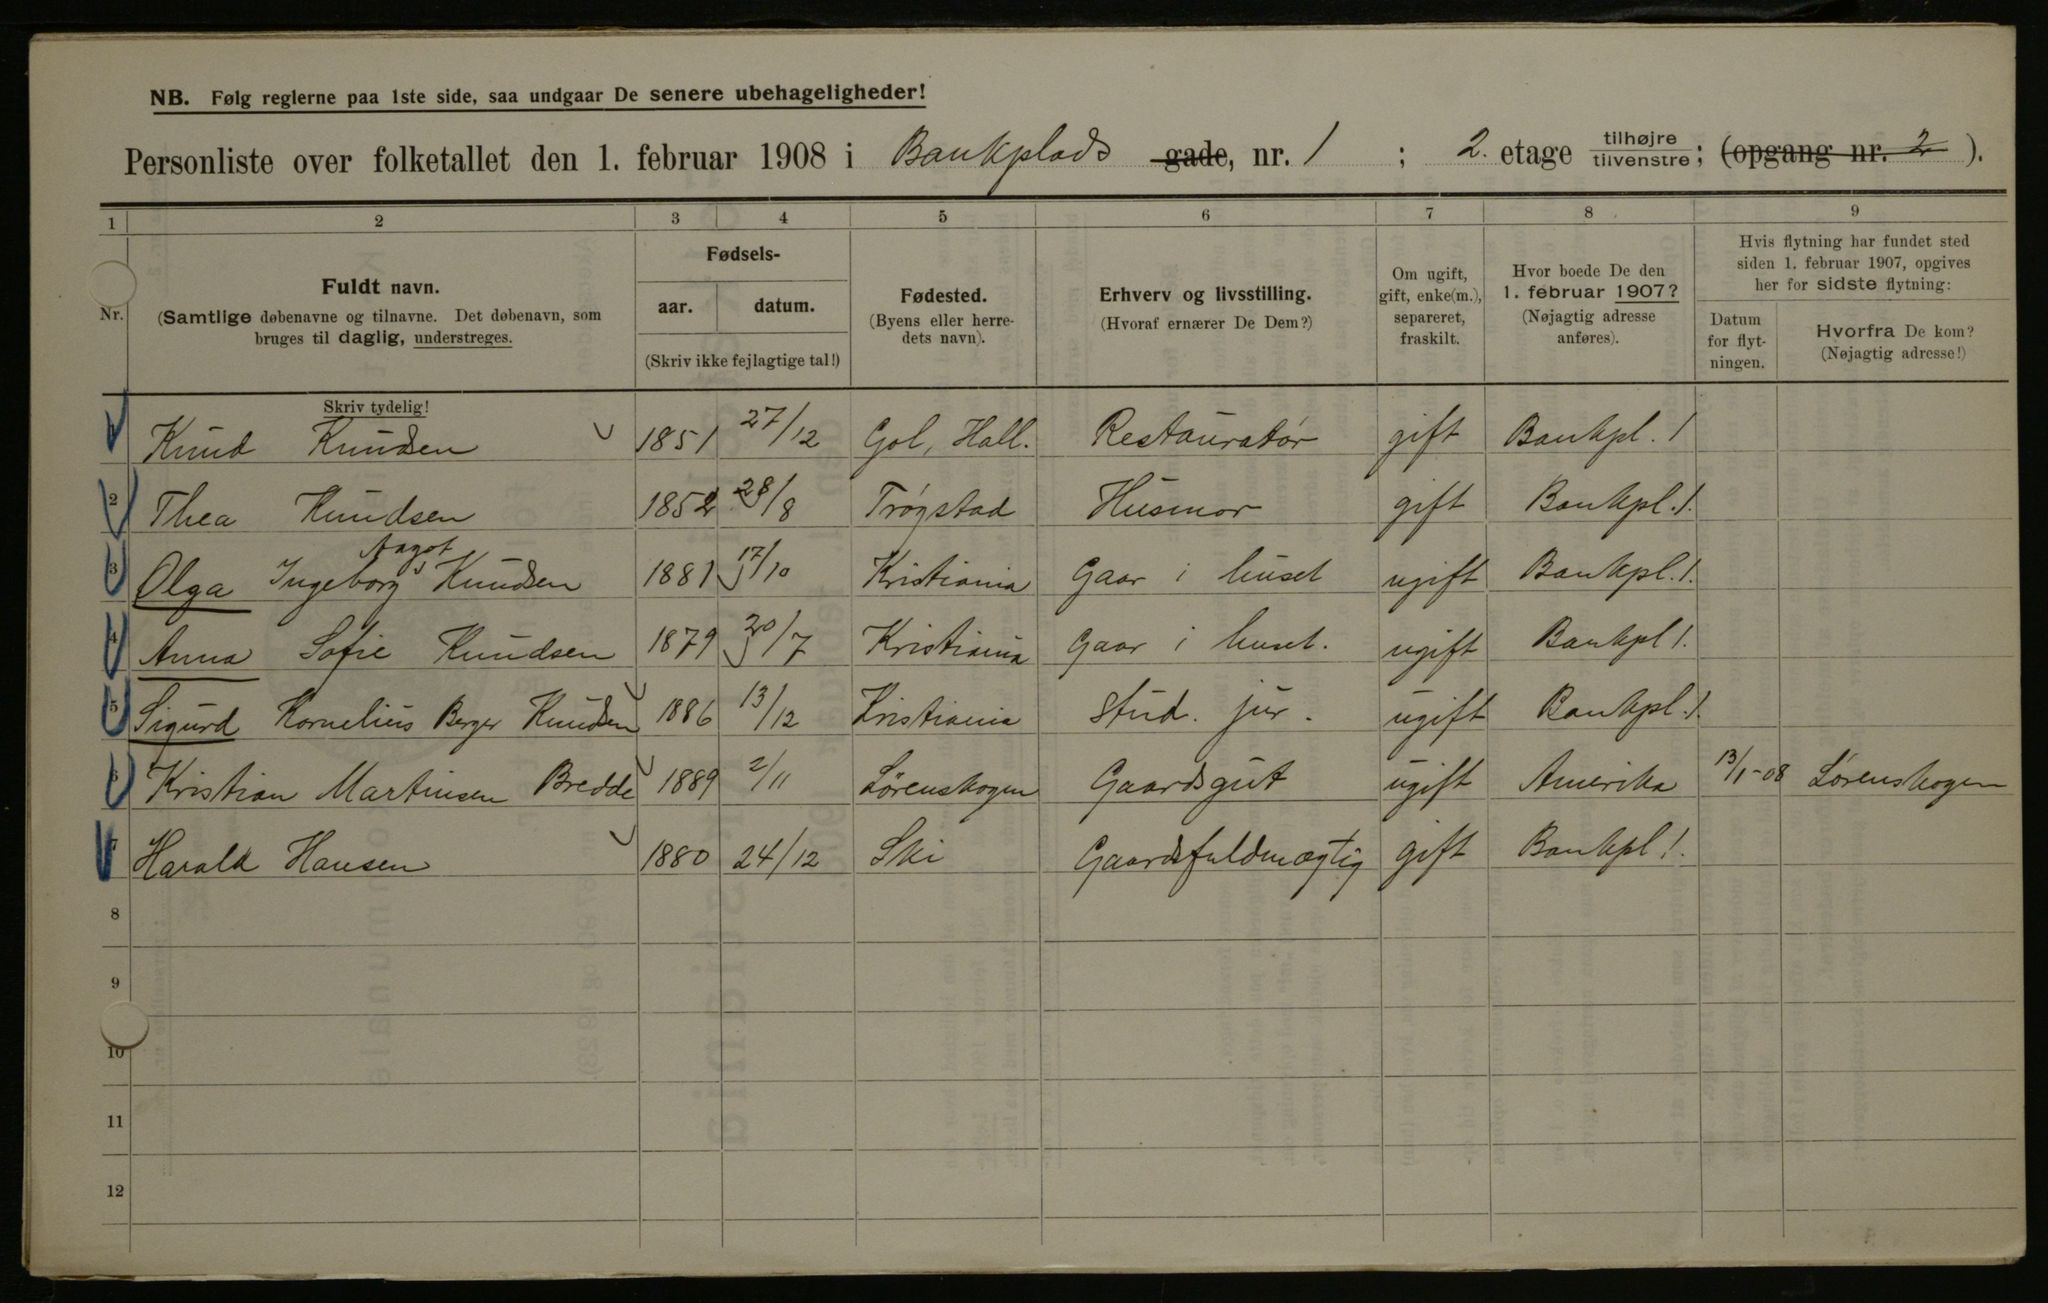 NB. Følg reglerne paa 1ste side, saa undgaar De senere ubehageligheder!
Personliste over folketallet den 1. februar 1908 i Bankplads gade, nr. 1 ; 2. etage tilhøjre tilvenstre; (opgang nr. 2 ).
1 2 3 4 5 6 7 8 9
Nr.
Fuldt navn.
(Samtlige døbenavne og tilnavne. Det døbenavn, som
bruges til daglig, understreges.
Skriv tydelig!
Fødsels-
aar. datum.
(Skriv ikke fejlagtige tal!)
Fødested.
(Byens eller herre-
dets navn).
Erhverv og livsstilling.
(Hvoraf ernærer De Dem?)
Om ugift,
gift, enke(m.),
separeret,
fraskilt.
Hvor boede De den
1. februar 1907?
(Nøjagtig adresse
anføres).
Hvis flytning har fundet sted
siden 1. februar 1907, opgives
her for sidste flytning:
Datum
for flyt-
ningen.
Hvorfra De kom?
(Nøjagtig adresse!)
1 Knud Knudsen 1851 27/12 Gol, Hall. Restauratør gift Bankpl. 1
2 Thea Knudsen 1852 28/8 Trøgstad Husmor gift Bankpl. 1.
3 Olga Ingeborg Aagot Knudsen 1881 17/10 Kristiania Gaar i huset ugift Bankpl. 1.
4 Anna Sofie Knudsen 1879 20/7 Kristiania Gaar i huset. ugift Bankpl 1.
5 Sigurd Kornelius Berger Knudsen 1886 13/12 Kristiania Stud. jur. ugift Bankpl. 1.
6 Kristian Martinsen Bredde 1889 2/11 Lørenskogen Gaardsgut ugift Amerika 13/1-08 Lørenskogen
7 Harald Hansen 1880 24/12 Ski Gaardsfuldmægtig gift Bankpl 1.
8
9
10
11
12